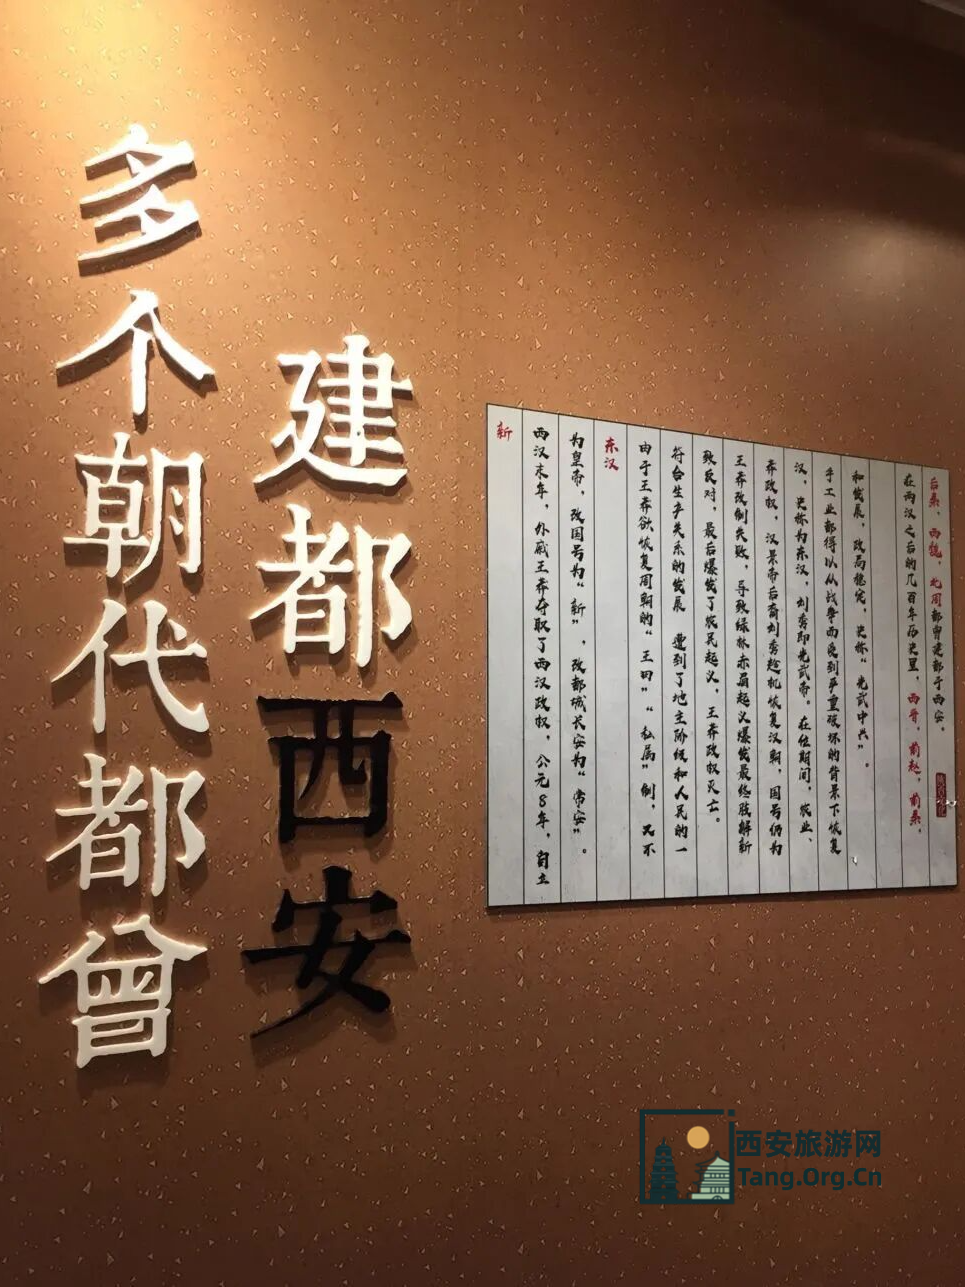 多个朝代都曾
建都西安
新
西汉末年，外戚王莽夺取了西汉政权，公元8年，自立
为皇帝，改国号为“新”，改都城长安为“常安”。
东汉
由于王莽欲恢复周朝的“王田”“私属”制，又不
符合生产关系的发展 遭到了地主阶级和人民的一
致反对，最后爆发了农民起义，王莽政权灭亡。
王莽改制失败，导致绿林赤眉起义爆发最终肢解新
莽政权，汉景帝后裔刘秀趁机恢复汉朝，国号仍为
汉，史称为东汉，刘秀即光武帝。在位期间，农业、
手工业都得以从战争而受到严重破坏的背景下恢复
和发展，政局稳定，史称“光武中兴”。
在两汉之后的几百年历史里，西晋，前赵，前秦，
后秦，西魏，北周都曾建都于西安。
西安旅游网
Tang.Org.Cn